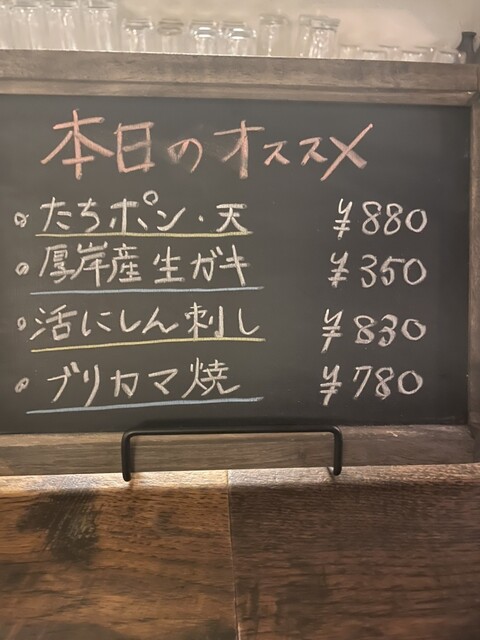 本日のオススメ
・たちポン・天 ¥880
・厚岸産生ガキ ¥350
・活にしん刺し ¥830
・ブリカマ焼 ¥780